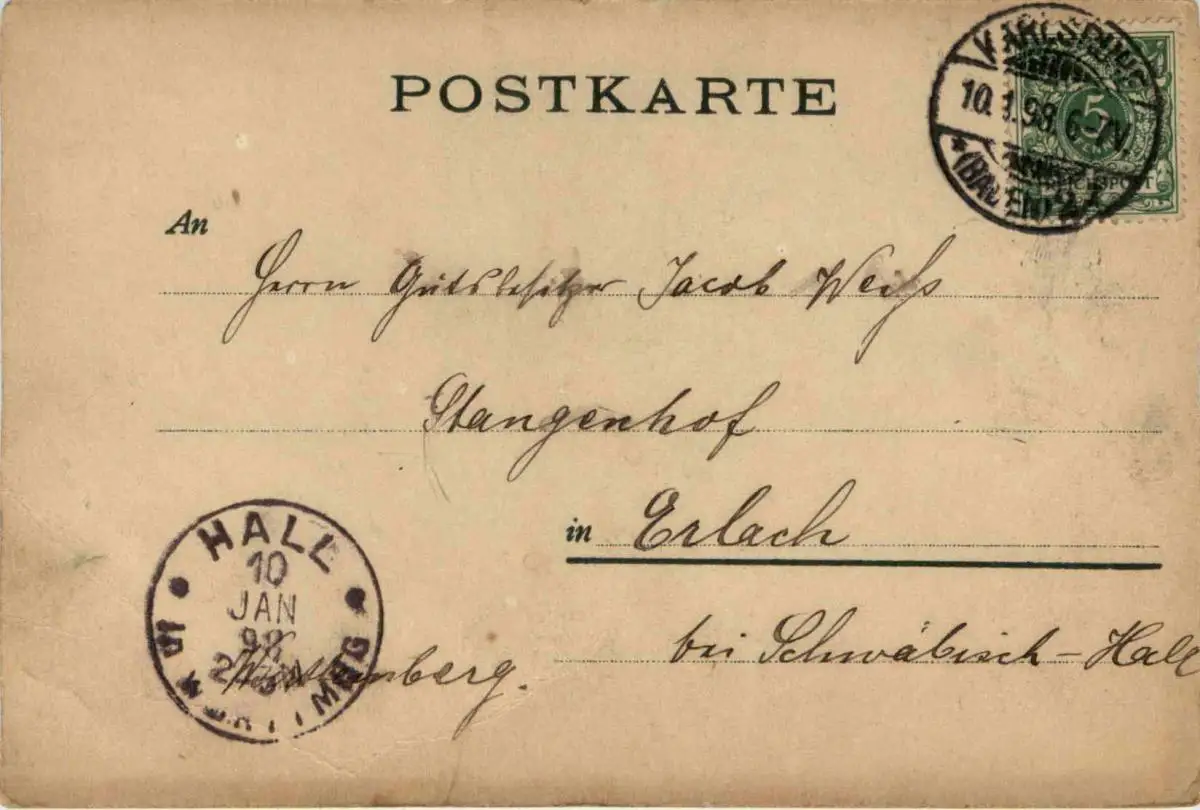 POSTKARTE
KARLSRUHE
10.1.98. 6-7V.
*(BADEN) 2
5
REICHSPOST
An
Herrn Gutsbesitzer Jacob Weiß
Stangenhof
in Erlach
bei Schwäbisch-Hall
Württemberg.
HALL
10
JAN
98
IN WÜRTTMBG